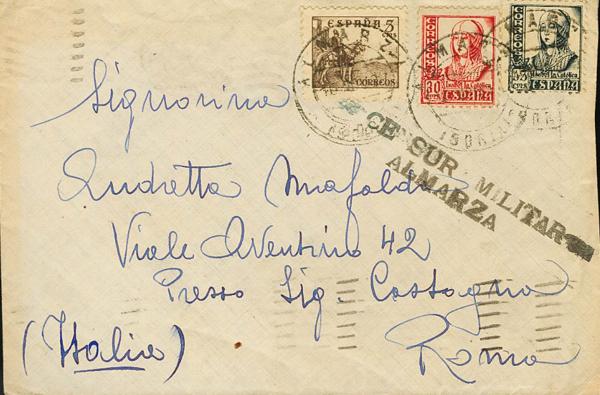 ESPAÑA 5
CORREOS
CORREOS
30 CTS
Isabel la Católica
ESPAÑA
CORREOS
Isabel la Católica
ESPAÑA
ALMARZA
ALMARZA
(SORIA)
CENSURA MILITAR
ALMARZA
Signorina
Andretta Mafalda
Viale Aventino 42
Presso Sig. Castagna
Roma
(Italia)